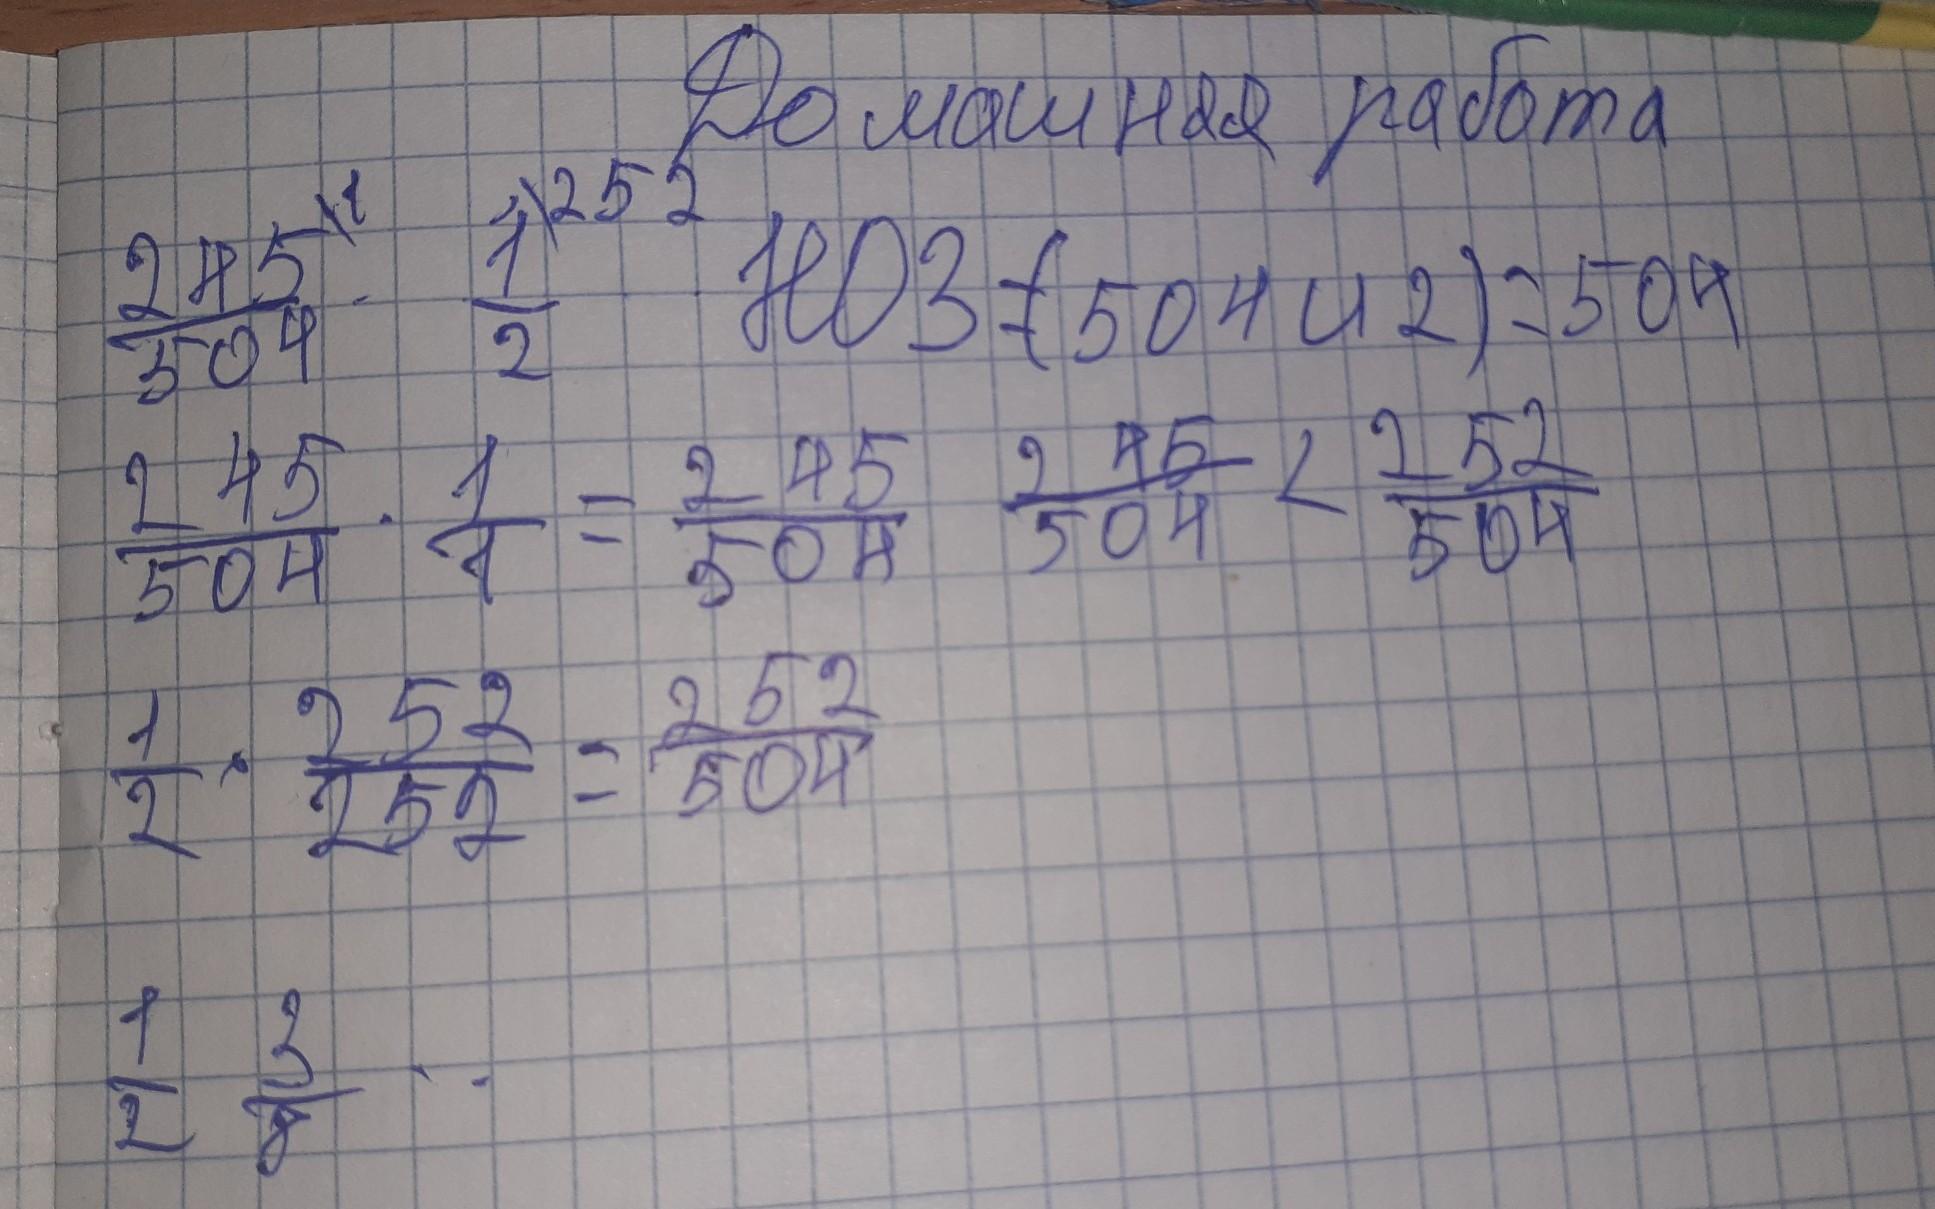 Домашняя работа
245/504 \1 · 1/2 \252 НОЗ (504 и 2) = 504
245/504 · 1/1 = 245/504 245/504 < 252/504
1/2 · 252/252 = 252/504
1/2 3/8